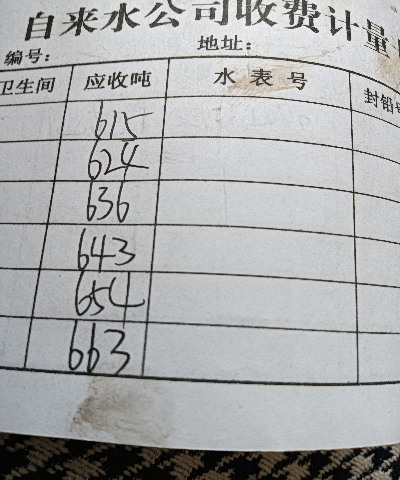 自来水公司收费计量
编号: 地址:
卫生间 应收吨 水表号 封铅号
615
624
636
643
654
663